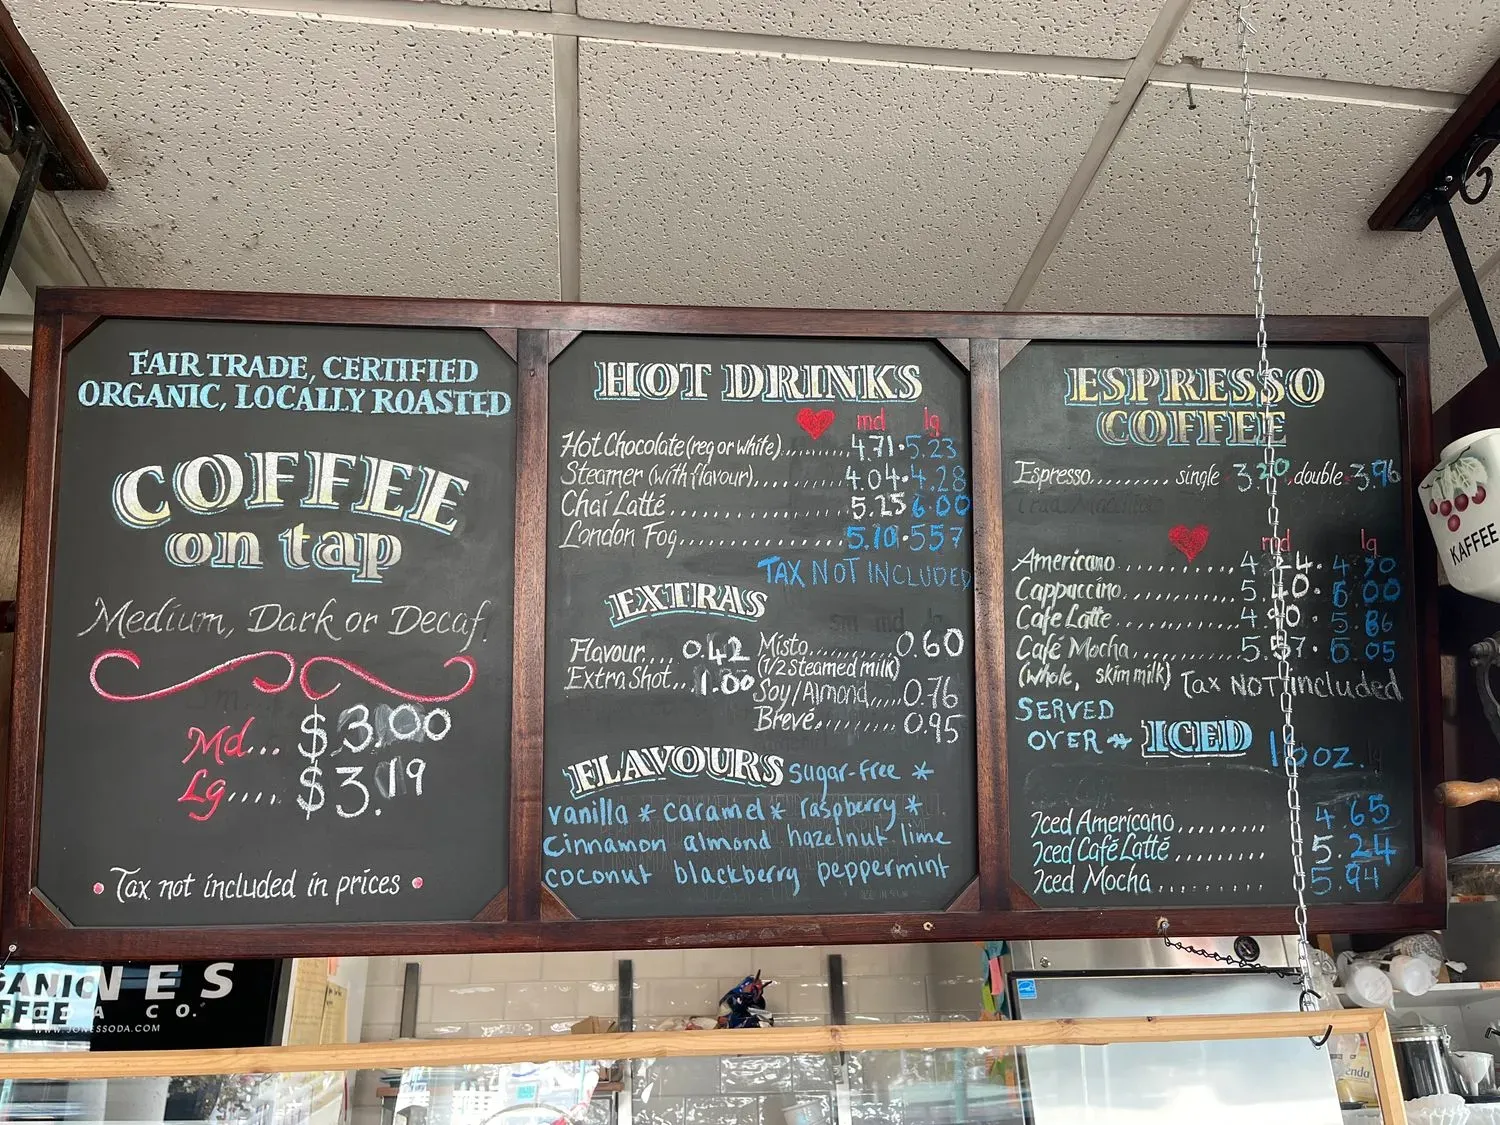 FAIR TRADE, CERTIFIED
ORGANIC, LOCALLY ROASTED
COFFEE
on tap
Medium, Dark or Decaf
Md... $3.00
Lg.... $3.19
• Tax not included in prices •
HOT DRINKS
md lg
Hot Chocolate (reg or white)......... 4.71 • 5.23
Steamer (with flavour)......... 4.04 • 4.28
Chai Latté.................. 5.25 6.00
London Fog............... 5.10 • 5.57
TAX NOT INCLUDED
EXTRAS
Flavour.... 0.42
Extra Shot... 1.00
Misto....... 0.60
(1/2 steamed milk)
Soy/Almond..... 0.76
Brevé........ 0.95
FLAVOURS sugar-free *
vanilla * caramel * raspberry *
cinnamon almond hazelnut lime
coconut blackberry peppermint
ESPRESSO
COFFEE
Espresso......... single 3.20 double 3.96
md lg
Americano............ 4.24 • 4.70
Cappuccino........... 5.40 • 6.00
Cafe Latte............ 4.90 • 5.86
Café Mocha.......... 5.57 • 6.05
(whole, skim milk) Tax NOT included
SERVED
OVER * ICED 16oz.
Iced Americano......... 4.65
Iced Café Latté......... 5.24
Iced Mocha......... 5.94
KAFFEE
GANIC
NES
A CO.
WWW.JONESSODA.COM